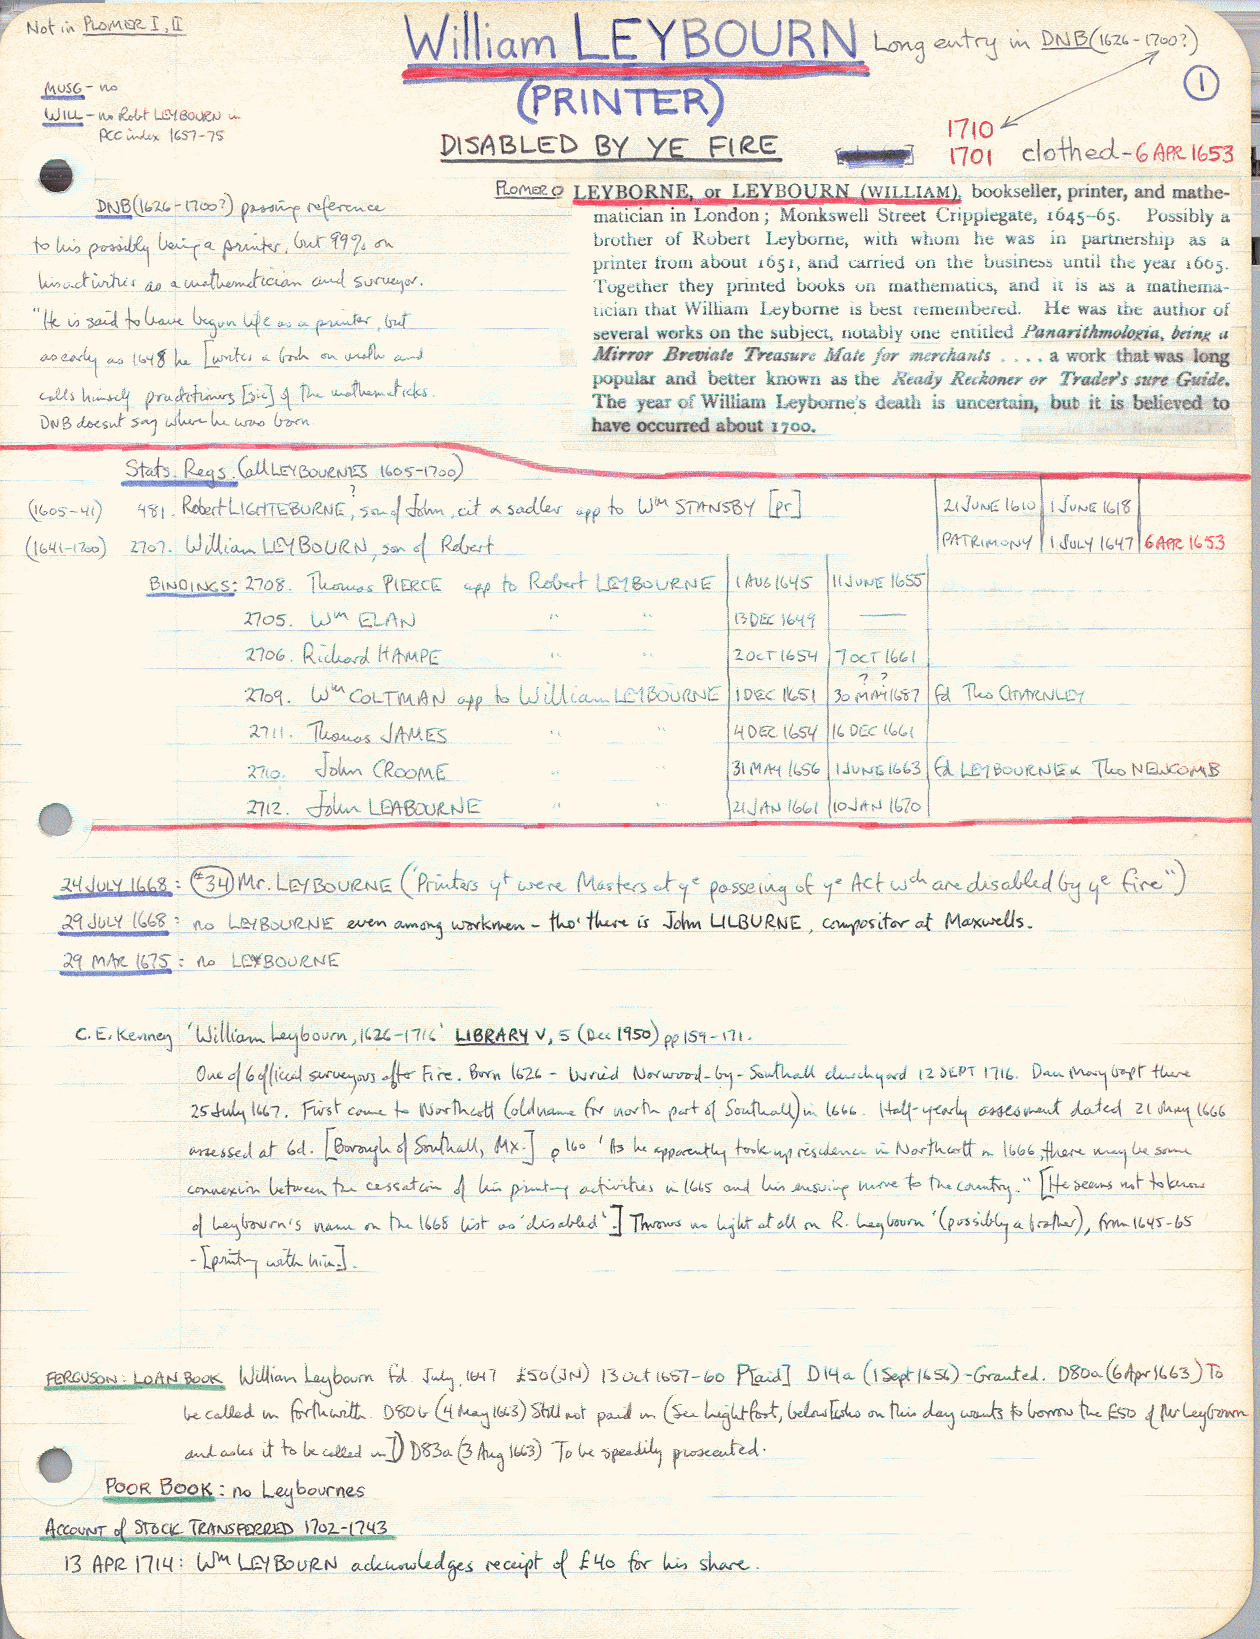 Not in PLOMER I, II
William LEYBOURN
Long entry in DNB (1626-1700?)
1
(PRINTER)
MUSG - no
WILL - no Robt LEYBOURN in
PCC index 1657-75
DISABLED BY YE FIRE
1710
1701 clothed - 6 APR 1653
DNB (1626-1700?) passing reference
to his possibly being a printer, but 99% on
his activities as a mathematician and surveyor.
"He is said to have begun life as a printer, but
as early as 1648 he [writes a book on math and
calls himself practitioners [sic] of the mathematicks.
DNB doesn't say where he was born.
PLOMER
LEYBORNE, or LEYBOURN (WILLIAM), bookseller, printer, and mathe-
matician in London; Monkswell Street Cripplegate, 1645-65. Possibly a
brother of Robert Leyborne, with whom he was in partnership as a
printer from about 1651, and carried on the business until the year 1665.
Together they printed books on mathematics, and it is as a mathema-
tician that William Leyborne is best remembered. He was the author of
several works on the subject, notably one entitled Panarithmologia, being a
Mirror Breviate Treasure Mate for merchants . . . . a work that was long
popular and better known as the Ready Reckoner or Trader's sure Guide.
The year of William Leyborne's death is uncertain, but it is believed to
have occurred about 1700.
Stats. Regs. (all LEYBOURNES 1605-1700)
(1605-41) 481. Robert LIGHTEBURNE?, son of John, cit & sadler app to Wm STANSBY [pr] 21 JUNE 1610 1 JUNE 1618
(1641-1700) 2707. William LEYBOURN, son of Robert PATRIMONY 1 JULY 1647 6 APR 1653
BINDINGS: 2708. Thomas PIERCE app to Robert LEYBOURNE 1 AUG 1645 11 JUNE 1655
2705. Wm ELAN " " 13 DEC 1649 —
2706. Richard HAMPE " " 2 OCT 1654 7 OCT 1661
2709. Wm COLTMAN app to William LEYBOURNE 1 DEC 1651 30 MAY 1687 ? ? fd Tho CHARNLEY
2711. Thomas JAMES " " 4 DEC 1654 16 DEC 1661
2710. John CROOME 31 MAY 1656 1 JUNE 1663 fd LEYBOURNE & Tho NEWCOMB
2712. John LEABOURNE " " 21 JAN 1661 10 JAN 1670
24 JULY 1668: #34 Mr. LEYBOURNE ("Printers yt were Masters at ye passeing of ye Act wch are disabled by ye fire")
29 JULY 1668: no LEYBOURNE even among workmen - tho' there is John LILBURNE, compositor at Maxwells.
29 MAR 1675: no LEYBOURNE
C. E. Kenney 'William Leybourn, 1626-1716' LIBRARY V, 5 (Dec 1950) pp 159-171.
One of 6 official surveyors after Fire. Born 1626 - buried Norwood-by-Southall churchyard 12 SEPT 1716. Dau Mary bapt there
25 July 1667. First came to Northcott (old name for north part of Southall) in 1666. Half-yearly assessment dated 21 May 1666
assessed at 6d. [Borough of Southall, Mx.] p 160 'As he apparently took up residence in Northcott in 1666, there may be some
connexion between the cessation of his printing activities in 1665 and his ensuing move to the country." [He seems not to know
of Leybourn's name on the 1668 list as 'disabled'.] Throws no light at all on R. Leybourn '(possibly a brother), from 1645-65
- [printing with him].
FERGUSON: LOAN BOOK William Leybourn fd. July, 1647 £50 (JN) 13 Oct 1657-60 P[aid] D14a (1 Sept 1656) - Granted. D80a (6 Apr 1663) To
be called in forthwith. D80b (4 May 1663) Still not paid in (See Lightfoot, below [who on this day wants to borrow the £50 of Mr Leybourn
and asks it to be called in]) D83a (3 Aug 1663) To be speedily prosecuted.
POOR BOOK: no Leybournes
ACCOUNT of STOCK TRANSFERRED 1702-1743
13 APR 1714: Wm LEYBOURN acknowledges receipt of £40 for his share.